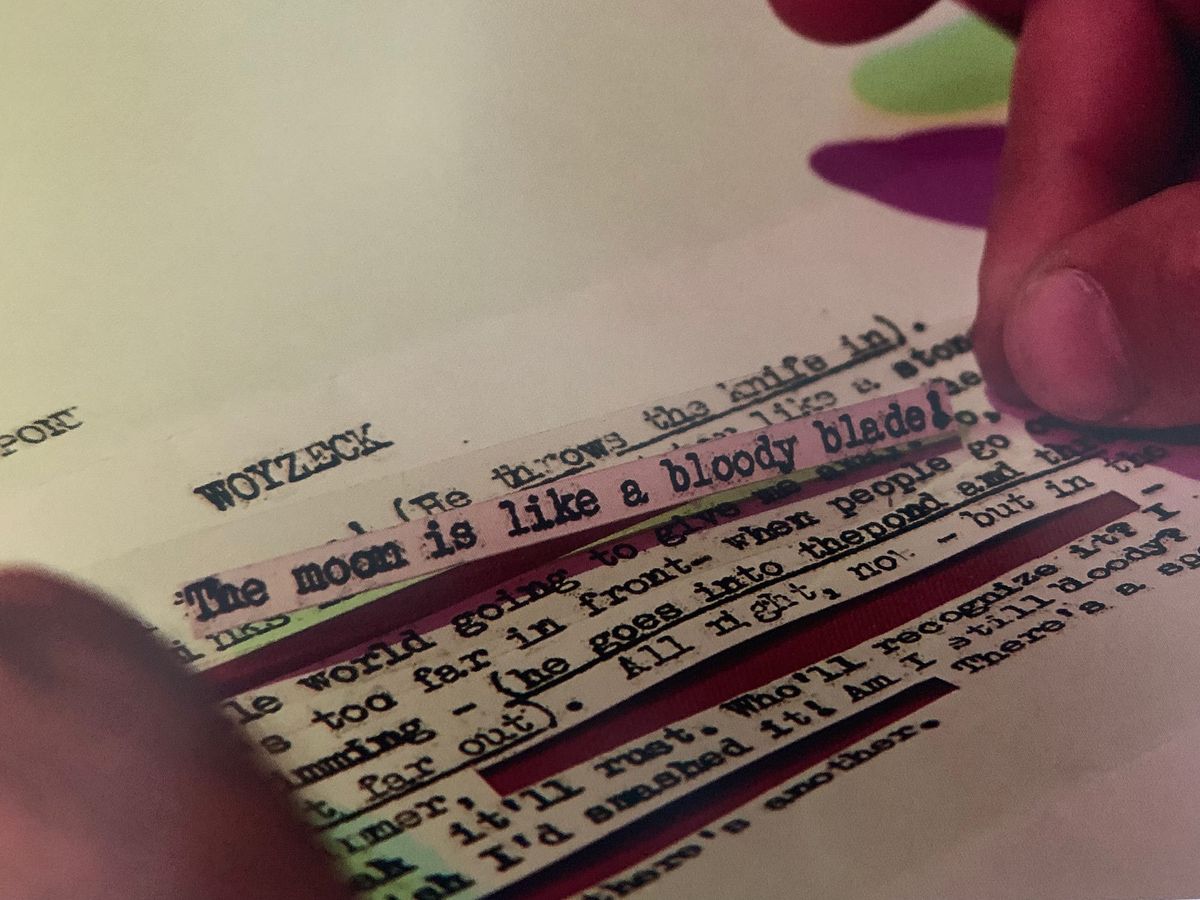 WOYZECK
(He throws the knife in).
like a stone
The moon is like a bloody blade!
inks
le world going to give me
s too far in front- when people go
mming - (he goes into thepond and
t far out). All right, now - but in
mer,
it'll rust. Who'll recognize it? I
I'd smashed it! Am I still bloody?
There's a
there's another.